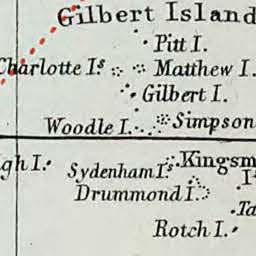 Gilbert Island
Pitt I.
Charlotte Is.
Matthew I.
Gilbert I.
Woodle I.
Simpson
gh I.
Sydenham Is.
Kingsm
Drummond I.
Is
Ta
Rotch I.